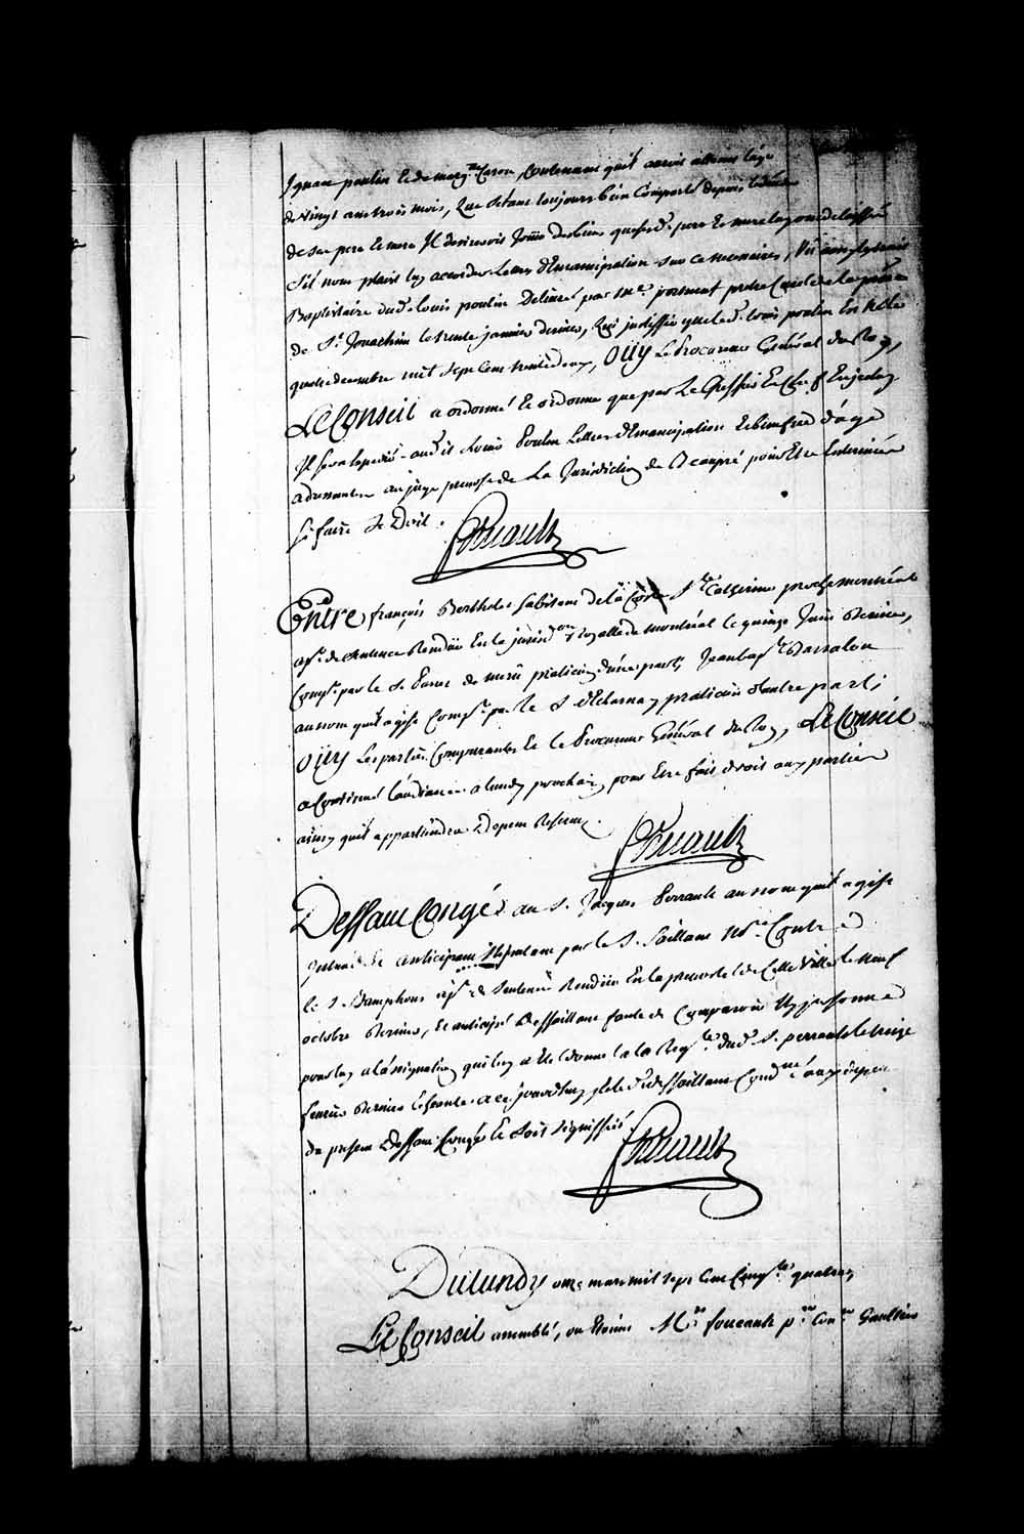 Ignace poulin et de marg.te Caron, Contenant quil auroit atteint lage
de vingt ans trois mois, Que s'étant toujours bien Comporté depuis le déces
de ses pere et mere Il desireroit Jouir des biens que sesd. pere et mere luy ont delaissé
S'il nous plaist luy accorder Lettres d'Emancipation sur ce necessaires, Vû aussy l'extrait
Baptistaire dud. Louis poulin Delivré par M.e portneuf pretre Curé de la paroisse
de S.t Jouachim le trente janvier dernier, Qui justiffie que led. Louis poulin Est né le
quatre decembre mil sept Cent trente deux, Oüy Le Procureur Général du Roy,
Le Conseil a ordonné et ordonne que par Le Greffier En Chef En jceluy
Il sera expedié audit Louis Poulin Lettres d'Emancipation et benefice d'âge
adressantes au juge prevost de La Jurisdiction de Beaupré pour Etre Enterinées
si faire se Doit. Foucault
Entre françois Berthelet habitant de la Coste S.te Catherine proche montréal
ap.t de sentence Rendüe En la jurisd.on Royalle de montréal le quinze Juin dernier,
Comp.t par le S.r Panet de meru praticien d'une part, Jean bap.te Dassalon
au nom quil agist Comp.t par le S. praticien d'autre part;
Oüy Les parties Comparantes Et le Procureur Général du Roy, Le Conseil
a Continué l'audiance a lundy prochain, pour Etre fait droit aux parties
ainsy quil appartiendra Depens Reservez. Foucault
Deffaut Congé au S. Jacques Perrault au nom quil agist
Intimé et anticipant stipulant par le S. Saillant No.re Contre
le S. ap.t de sentence Rendüe En la prevosté de Cette Ville le neuf
octobre dernier, Et anticipé Deffaillant faute de Comparoir Ny personne
pour luy a l'assignation qui luy a Eté donnée a la Req.te dud. S. perrault le treize
fevrier dernier Echeante a ce jourd'huy Et led. deffaillant Cond.né aux depens
du présent Deffaut Congé Et soit signiffié. Foucault
Du Lundy onze mars mil sept Cent Cinq.te quatre,
Le Conseil assemblé, ou étoient M.rs foucault p.er Con.er Gaultier